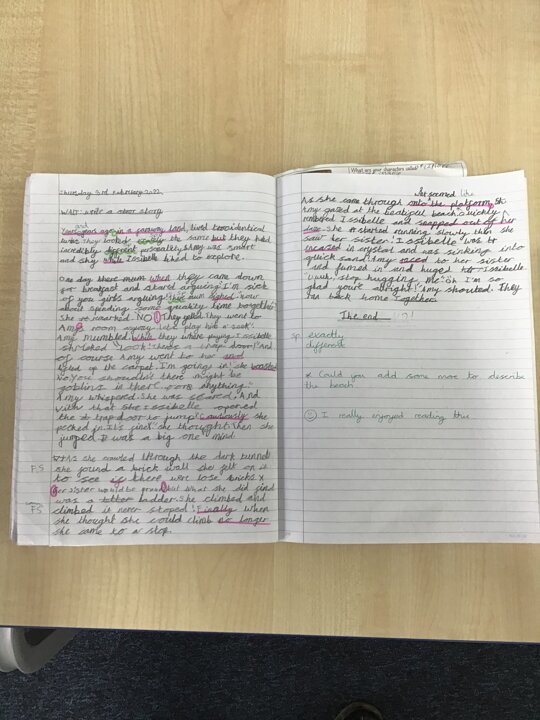 Thursday 3rd February 2022
WALT: write a story
Years and years ago in a faraway land, lived two identical
twins. They looked the same but they had
incredibly different personalitys. Amy was smart
and shy while Issibelle liked to explore.
One day there mum when they came down
for breakfast and stard arguing. I'm sick
of you girls arguing! there mum sighed. How
about spending some quality time together?
She remarked NO! They yelled. They went to
Amy's room lets play hide &
Amy mumbled. While they where playing Issibelle
shrieked "Look! Theres a trap door! And
of course Amy went to her and
lifted up the carpet. I'm going in! she boasted
No, you shouldn't there might be
goblins in there, or anything."
Amy whisperd. She was scared. And
with that she Issibelle opened
the trap door to jump! Cautiously she
pecked in. It's fine she thought. Then she
jumped. It was a big one mind.
As she crawled through the dark tunnel
FS she found a brick wall she felt on it
to see if there were lose bricks
her sister would be proud but what she did find
was a ladder. She climbed and
FS climbed it never stoped! Finally when
she thought she could climb no longer
she came to a stop.
What are your characters called?
like
As she came through into the platform,
Amy gazed at the beatiful beach. Quickly
Issibelle and snapped out of her
daze. She started running slowly then she
saw her sister! Issibelle was
incased in crystal and was sinking into
quick sand! Amy raced to her sister
and and huged Issibelle.
stop hugging me. Oh I'm so
glad your alright! Amy shouted. They
ran back home together.
The end
sp exactly
different
* Could you add some more to describe
the beach
I really enjoyed reading this